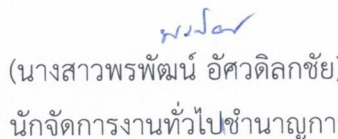 (นางสาวพรพัฒน์ อัศวดิลกชัย)
นักจัดการงานทั่วไปชำนาญกา